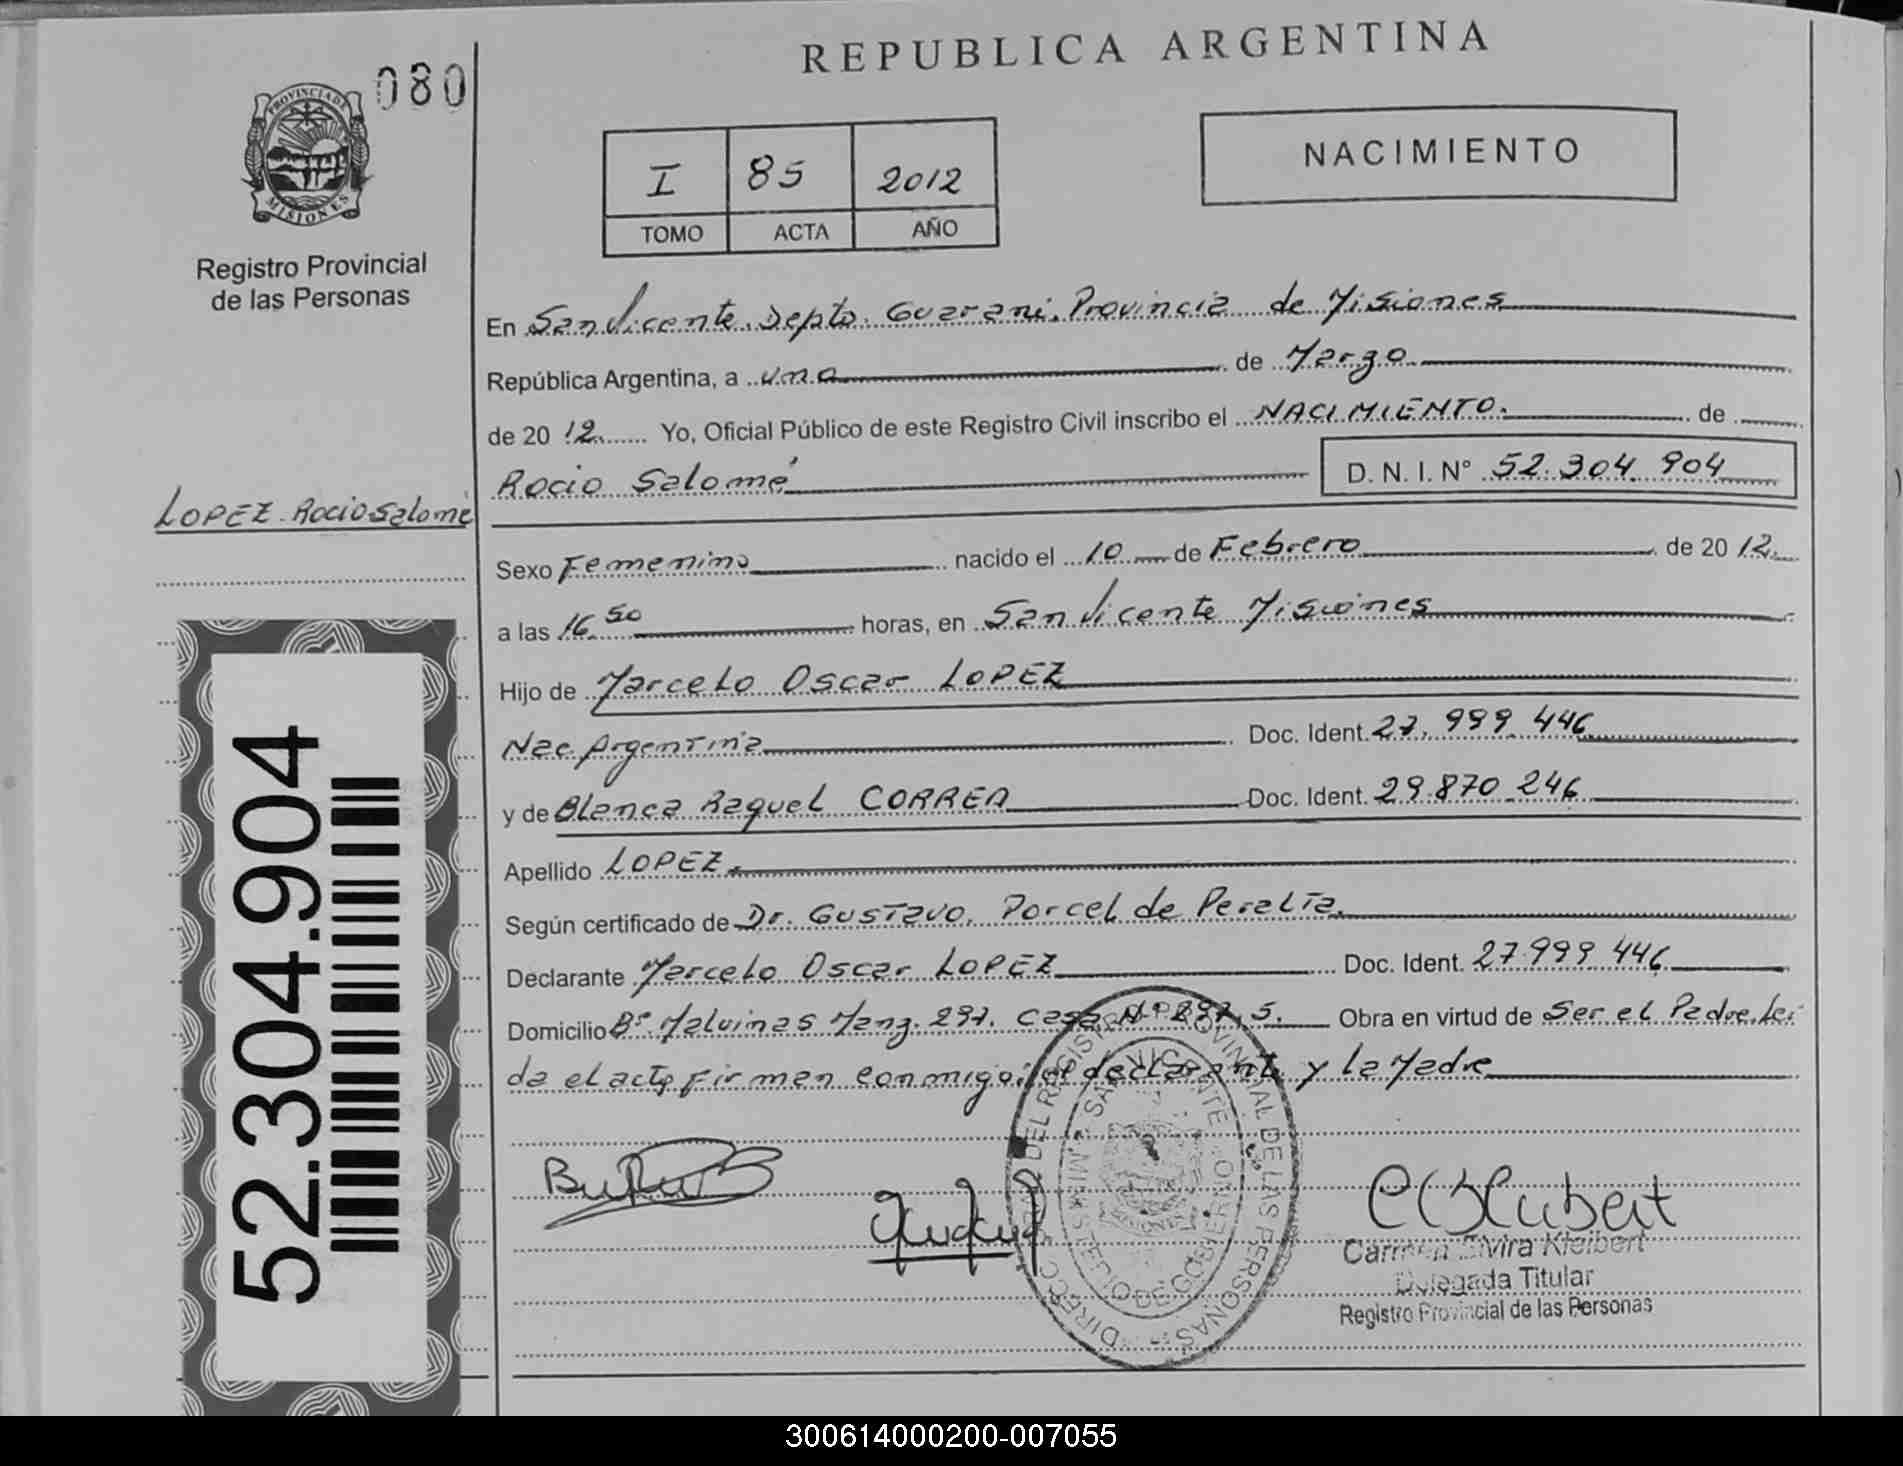 080
PROVINCIA DE
MISIONES
Registro Provincial
de las Personas
LOPEZ Rocio Salomé
52.304.904
REPUBLICA ARGENTINA
I 85 2012
TOMO ACTA AÑO
NACIMIENTO
En San Vicente. Depto. Guarani. Provincia de Misiones
República Argentina, a uno de Marzo
de 20 12 Yo, Oficial Público de este Registro Civil inscribo el NACIMIENTO. de
Rocio Salomé D. N. I. N° 52.304.904
Sexo Femenino nacido el 10 de Febrero de 20 12
a las 16 50 horas, en San Vicente Misiones
Hijo de Marcelo Oscar LOPEZ
Nac. Argentina Doc. Ident. 27.999.446
y de Blanca Raquel CORREA Doc. Ident. 29.870 246
Apellido LOPEZ.
Según certificado de Dr. Gustavo. Porcel de Peralta.
Declarante Marcelo Oscar LOPEZ Doc. Ident. 27.999 446
Domicilio B° Malvinas Manz. 297. Casa N° 297 5. Obra en virtud de Ser el Padre. Lei
da el acta firman conmigo el declarante y la Madre
DIRECC DEL REGISTRO PROVINCIAL DE LAS PERSONAS
SAN VICENTE
MINISTERIO DE GOBIERNO
Carmen Elvira Kleibert
Delegada Titular
Registro Provincial de las Personas
300614000200-007055